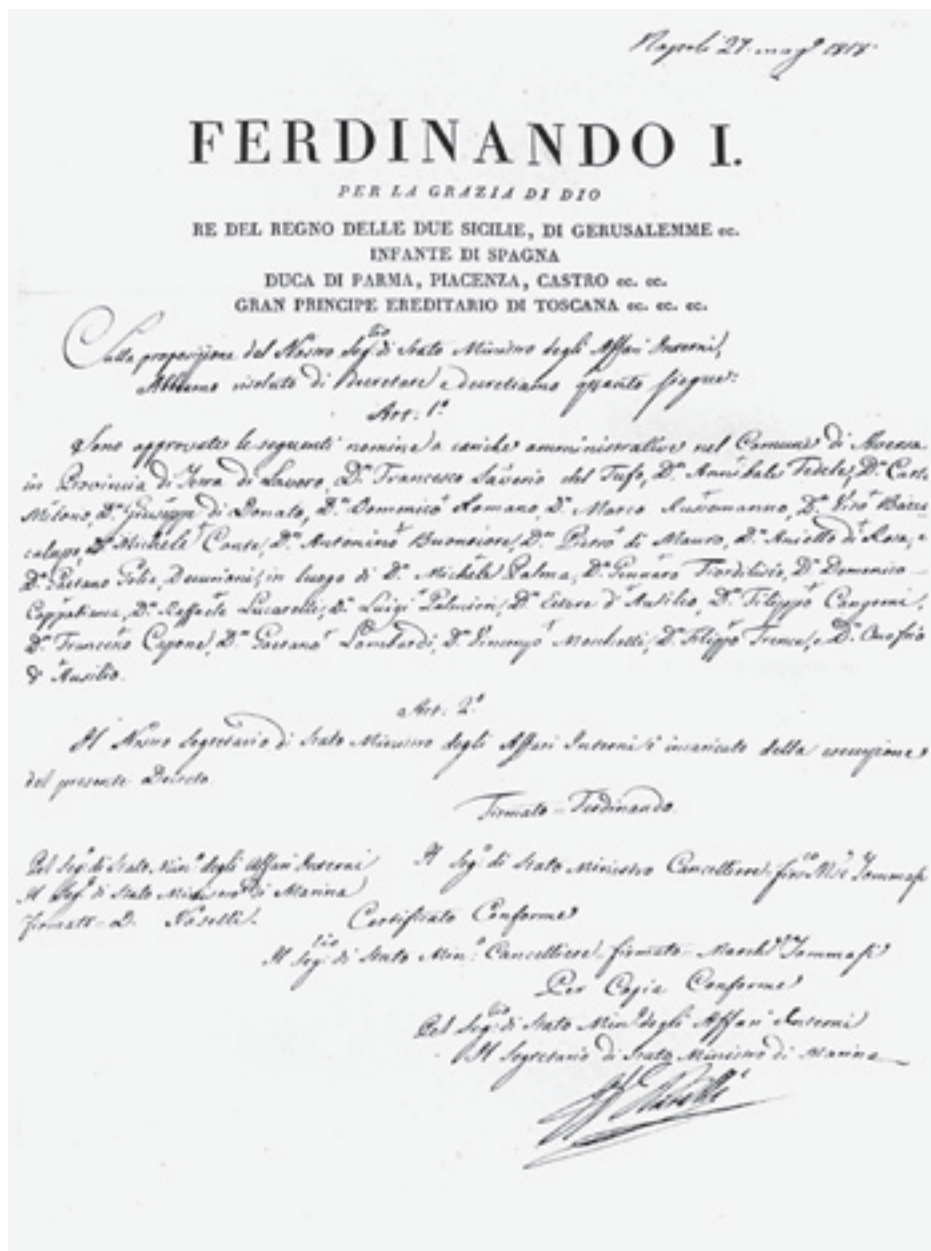 Napoli 27. mag.o 1818
FERDINANDO I.
PER LA GRAZIA DI DIO
RE DEL REGNO DELLE DUE SICILIE, DI GERUSALEMME ec.
INFANTE DI SPAGNA
DUCA DI PARMA, PIACENZA, CASTRO ec. ec.
GRAN PRINCIPE EREDITARIO DI TOSCANA ec. ec. ec.
Sulla proposizione del Nostro Seg.rio di Stato Ministro degli Affari Interni,
Abbiamo risoluto di decretare e decretiamo quanto siegue:
Art. 1.o
Sono approvate le seguenti nomine a cariche amministrative nel Comune di Aversa
in Provincia di Terra di Lavoro, D.n Francesco Saverio del Tufo, D.n Annibale Fedele, D.n Carlo
Milone, D.n Giuseppe di Donato, D.n Domenico Romano, D.n Marco D.n Vito
D.n Michele Conte, D.n Antonino Buoncore, D.n Pietro di Mauro, D.n Aniello di Rosa, e
D.n Gaetano Decurioni, in luogo di D.n Michele Palma, D.n Gennaro D.n Domenico
D.n Raffaele Lucarelli, D.n Luigi D.n d'Ausilio, D.n Filippo
D.n Francesco Capone, D.n Gaetano Lombardi, D.n Vincenzo D.n Filippo e D.n Onofrio
d'Ausilio.
Art. 2.o
Il Nostro Segretario di Stato Ministro degli Affari Interni è incaricato della esecuzione
del presente Decreto.
Firmato - Ferdinando
Pel Seg.o di Stato Min.o degli Affari Interni
Il Seg.o di Stato Ministro Cancelliere Tommasi
Il Seg.o di Stato Ministro di Marina
firmato - D. Naselli.
Certificato Conforme
Il Seg.rio di Stato Min.o Cancelliere firmato - March. Tommasi
Per Copia Conforme
Pel Seg.rio di Stato Min.o degli Affari Interni
Il Segretario di Stato Ministro di Marina
Naselli